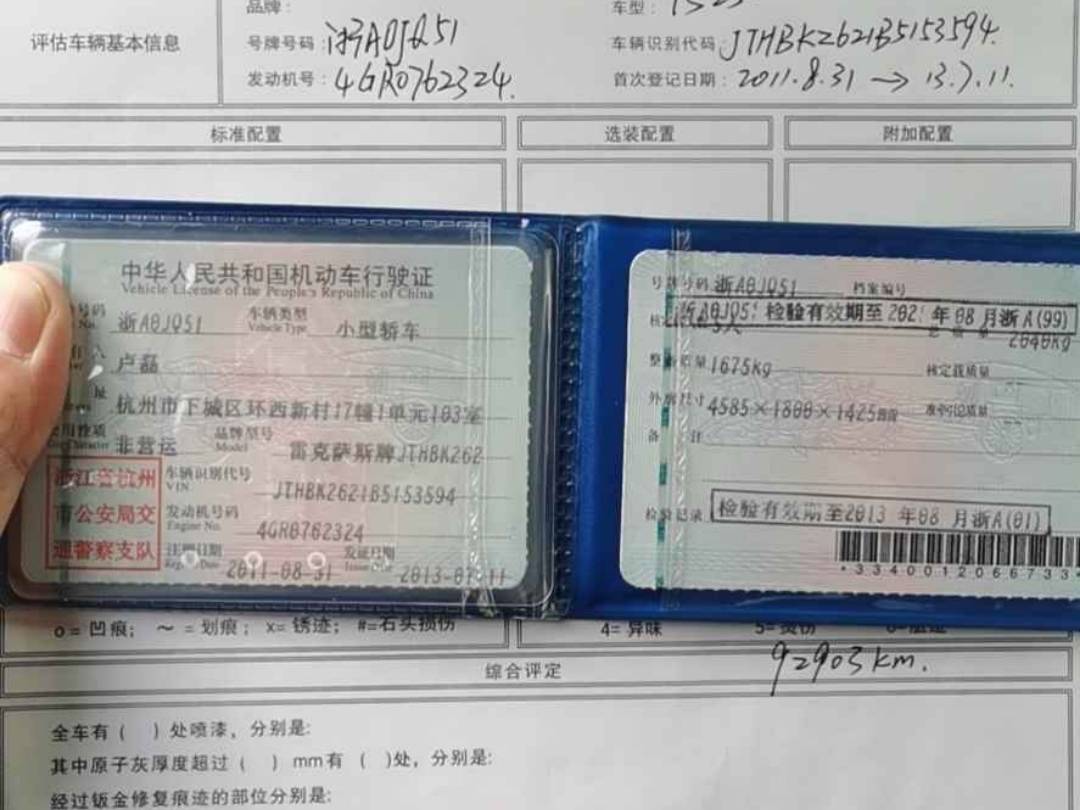 品牌：
车型：
评估车辆基本信息
号牌号码：浙A0JQ51
车辆识别代码：JTHBK2621B5153594.
发动机号：4GR0762324.
首次登记日期：2011.8.31 → 13.7.11.
标准配置
选装配置
附加配置
中华人民共和国机动车行驶证
Vehicle License of the People's Republic of China
号码 浙A0JQ51
车辆类型 小型轿车
Vehicle Type
卢磊
址 杭州市下城区环西新村17幢1单元103室
非营运
品牌型号 雷克萨斯牌JTHBK262
Model
浙江省杭州
市公安局交
通警察支队
车辆识别代号 JTHBK2621B5153594
VIN
发动机号码 4GR0762324
Engine No.
注册日期 2011-08-31
发证日期 2013-07-11
Issue Date
号牌号码 浙A0JQ51
档案编号
浙A0JQ51 检验有效期至202 年08月浙A(99)
2040kg
整备质量 1675kg
核定载质量
外廓尺寸 4585×1800×1425
准牵引总质量
备 注
检验记录 检验有效期至2013 年08 月浙A(01)
*334001206673 3
o= 凹痕； ～ = 划痕； x= 锈迹； #=石头损伤
4= 异味
92903km.
综合评定
全车有（ ）处喷漆，分别是:
其中原子灰厚度超过（ ）mm有（ )处，分别是:
经过钣金修复痕迹的部位分别是: